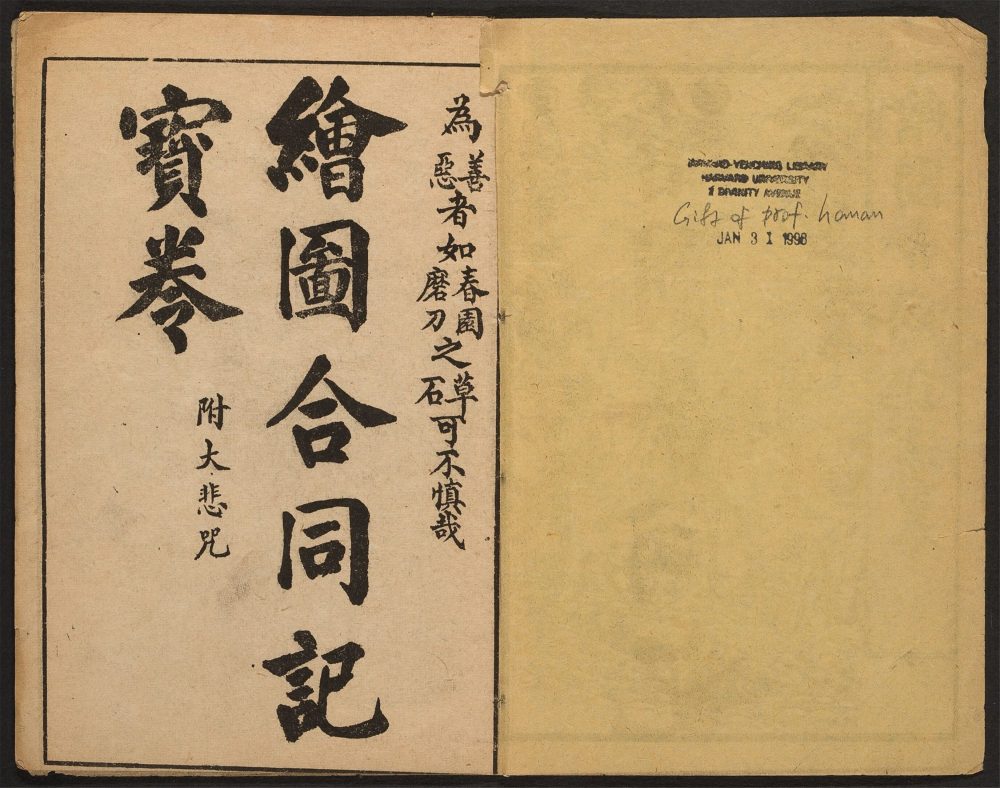 HARVARD-YENCHING LIBRARY
HARVARD UNIVERSITY
2 DIVINITY AVENUE
Gift of prof. hanan
JAN 3 1 1998
為善惡者如春園磨刀之草石可不慎哉
繪圖合同記
寶卷
附大悲咒